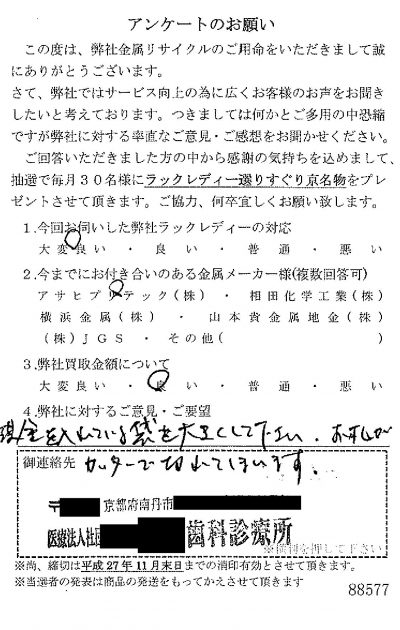 アンケートのお願い
この度は、弊社金属リサイクルのご用命をいただきまして誠
にありがとうございます。
さて、弊社ではサービス向上の為に広くお客様のお声をお聞き
したいと考えております。つきましては何かとご多用の中恐縮
ですが弊社に対する率直なご意見・ご感想をお聞かせください。
ご回答いただきました方の中から感謝の気持ちを込めまして、
抽選で毎月30名様にラックレディー選りすぐり京名物をプレ
ゼントさせて頂きます。ご協力、何卒宜しくお願い致します。
1.今回お伺いした弊社ラックレディーの対応
大変良い・良い・普通・悪い
2.今までにお付き合いのある金属メーカー様(複数回答可)
アサヒプリテック(株)・相田化学工業(株)
横浜金属(株)・山本貴金属地金(株)
(株)JGS・その他( )
3.弊社買取金額について
大変良い・良い・普通・悪い
4.弊社に対するご意見・ご要望
現金を入れている袋を大きくして下さい。お札が
御連絡先 カッターで切れてしまいます。
〒 京都府南丹市
医療法人社団 歯科診療所
※横判を押して下さい
※尚、締切は平成27年11月末日までの消印有効とさせて頂きます。
※当選者の発表は商品の発送をもってかえさせて頂きます
88577